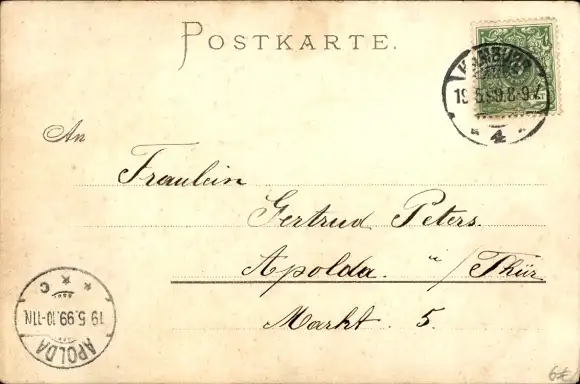 POSTKARTE.
HAMBURG
19.5.99.8-9V.
* 4 *
An
Fräulein
Gertrud Peters.
Apolda. i/Thür
Markt. 5.
APOLDA
19.5.99.10-11N.
* * C
6€